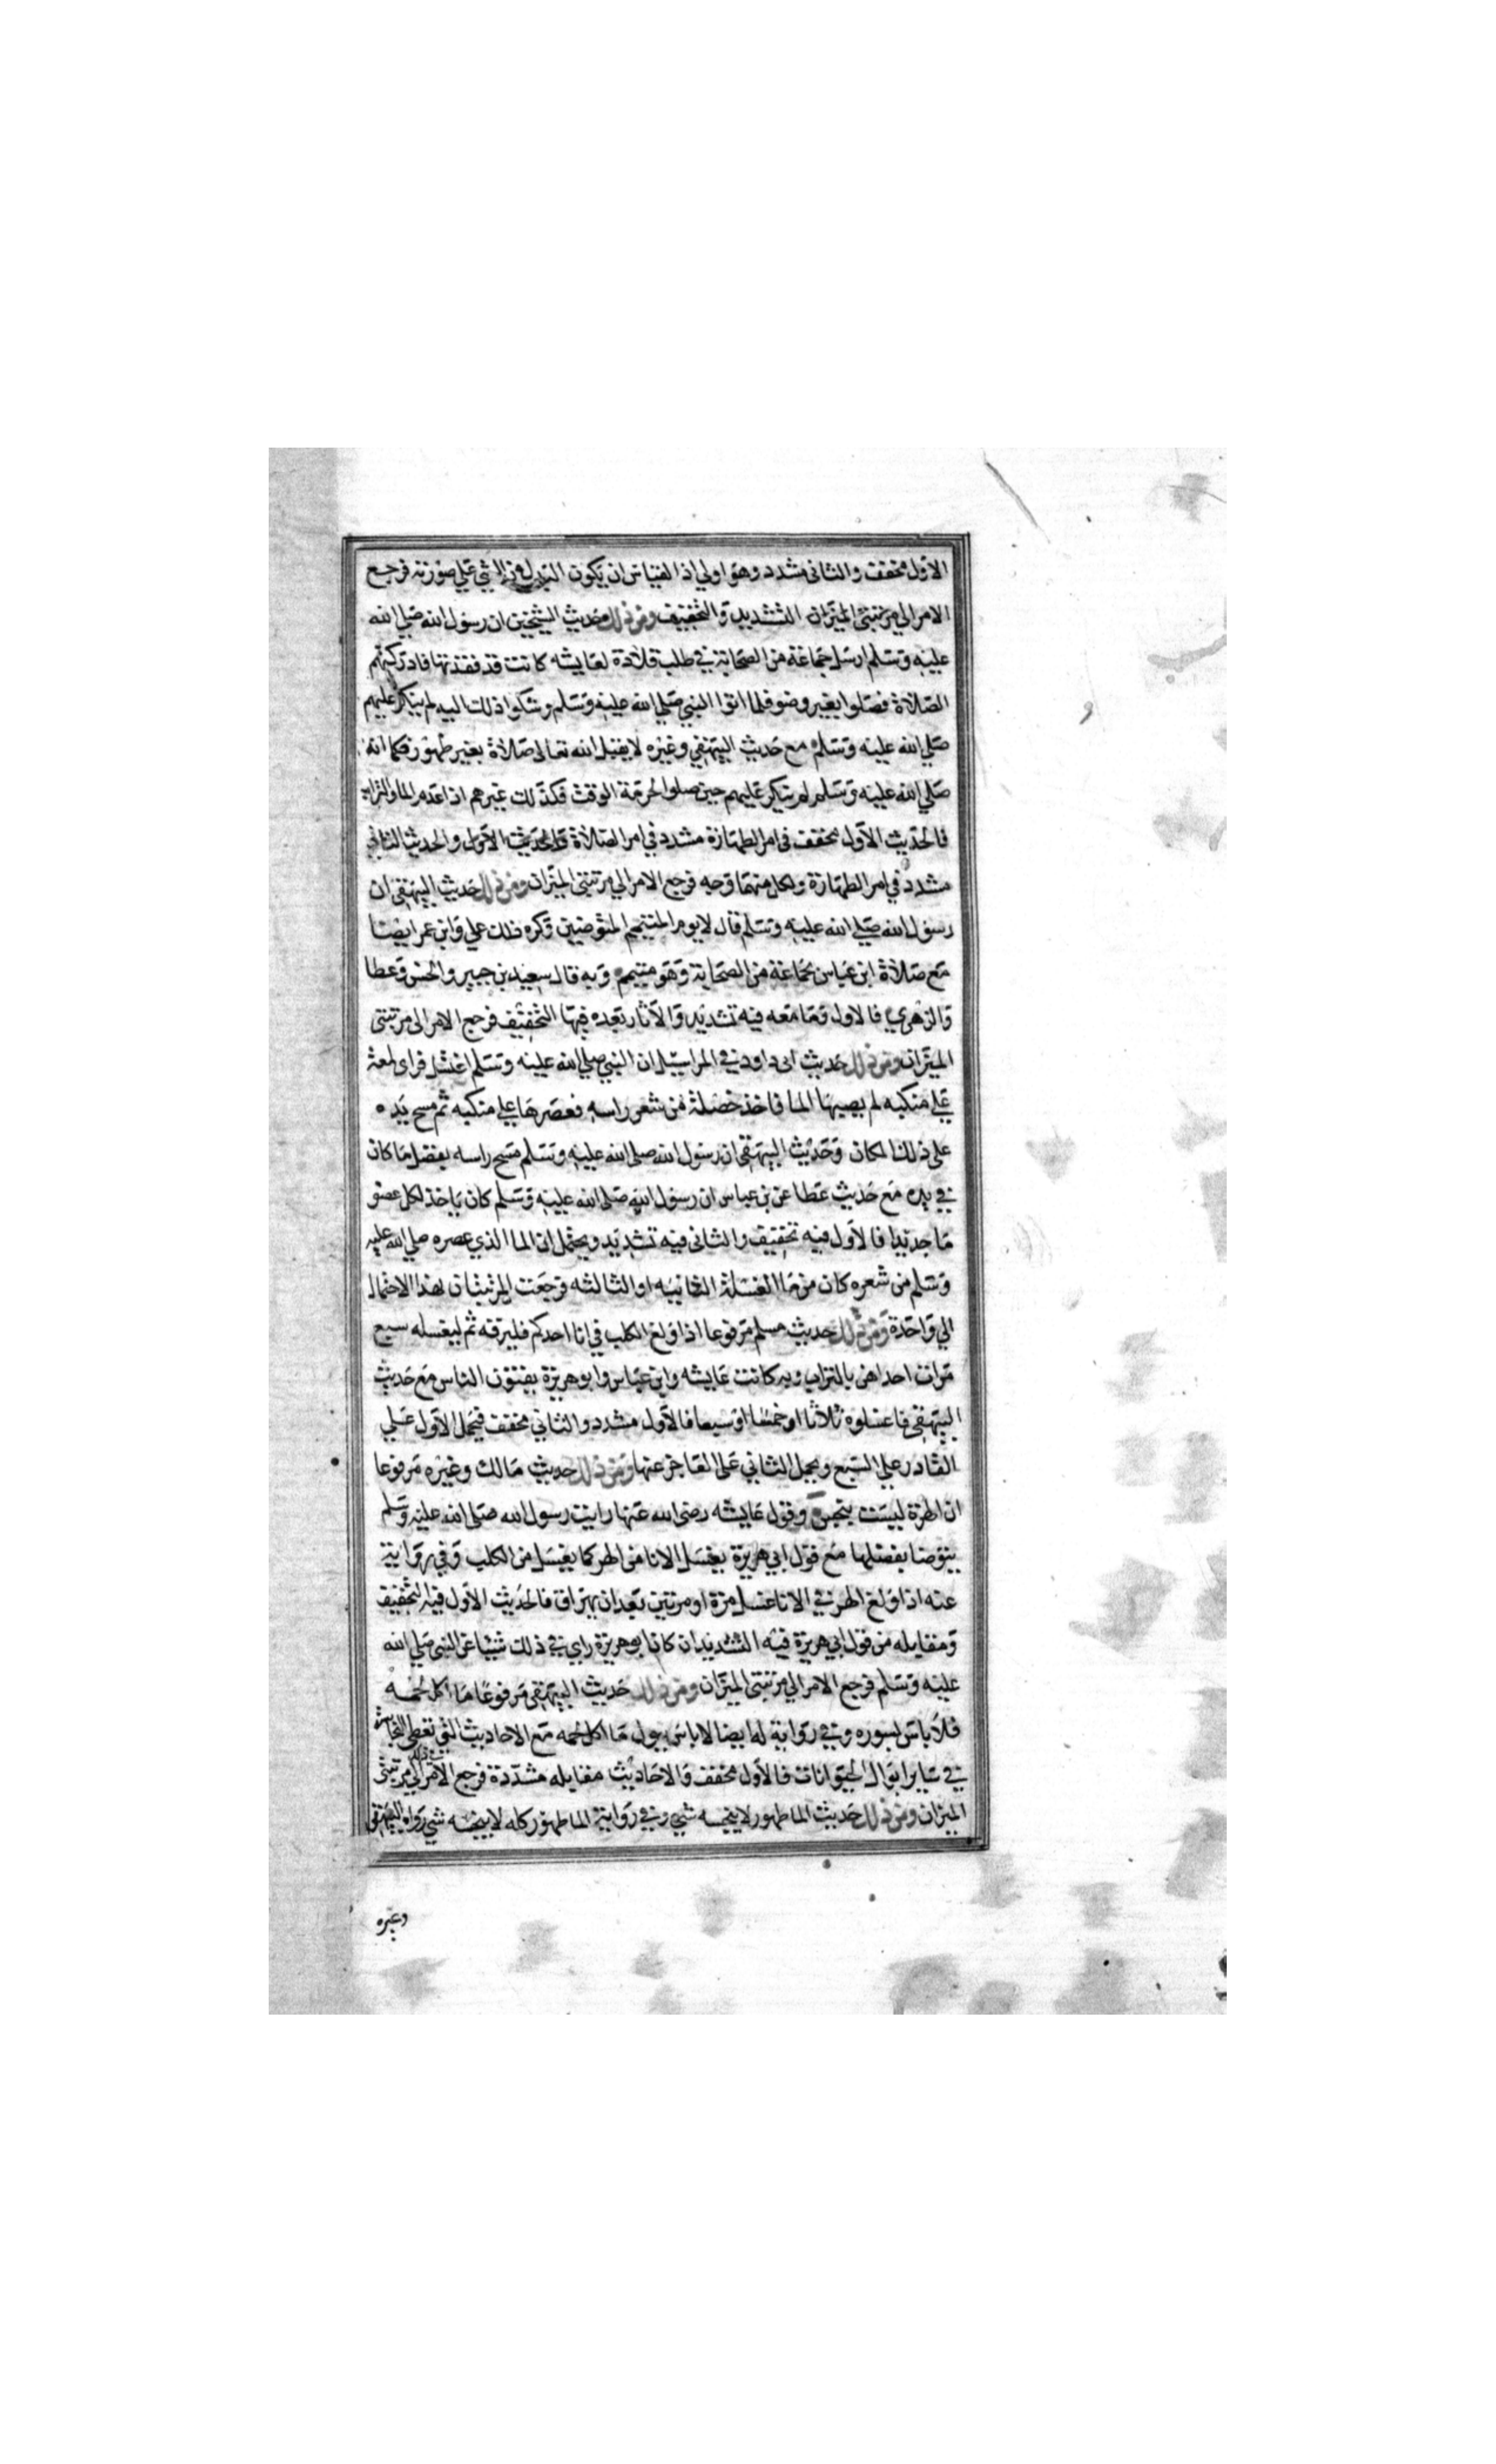 الاول مخفف والثانى مشدد وهو اولي اذ القياس ان يكون البدل عن الشي علي صورته فرجع
الامر الي مرتبتى الميزان التشديد والتخفيف ومن ذلك حديث الشيخين ان رسول الله صلي الله
عليه وسلم ارسل جماعة من الصحابة في طلب قلادة لعايشه كانت قد فقدتها فادركتهم
الصلاة فصلوا بغير وضو فلما اتوا النبي صلي الله عليه وسلم وشكوا ذلك اليه لم ينكر عليهم
صلي الله عليه وسلم مع حديث البيهقي وغيره لا يقبل الله تعالى صلاة بغير طهور فكما انه
صلي الله عليه وسلم لم ينكر عليهم حين صلوا لحرمة الوقت فكذلك غيرهم اذا عدم الماء والتراب
فالحديث الاول مخفف فى امر الطهارة مشدد في امر الصلاة والحديث الاول والحديث الثاني
مشدد في امر الطهارة ولكل منهما وجه فرجع الامر الي مرتبتى الميزان ومن ذلك حديث البيهقى ان
رسول الله صلي الله عليه وسلم قال لا يوم المتيمم المتوضيين وكره ذلك علي وابن عمر ايضا
مع صلاة ابن عباس بجماعة من الصحابة وهو متيمم وبه قال سعيد بن جبير والحسن وعطا
والزهري فالاول وما معه فيه تشديد والآثار بعده فيها التخفيف فرجع الامر الى مرتبتى
الميزان ومن ذلك حديث ابى داود في المراسيل ان النبي صلي الله عليه وسلم اغتسل فراى لمعة
علي منكبه لم يصبها الما فاخذ خصلة من شعر راسه فعصرها علي منكبه ثم مسح يده
على ذلك المكان وحديث البيهقى ان رسول الله صلى الله عليه وسلم مسح راسه بفضل ما كان
في يده مع حديث عطا عن بن عباس ان رسول الله صلى الله عليه وسلم كان ياخذ لكل عضو
ما جديدا فالاول فيه تخفيف والثانى فيه تشديد ويحتمل ان الما الذي عصره صلي الله عليه
وسلم من شعره كان من ما الغسلة الثانيه او الثالثه فرجعت المرتبتان بهذا الاحتمال
الي واحدة ومن ذلك حديث مسلم مرفوعا اذا ولغ الكلب في انا احدكم فليرقه ثم ليغسله سبع
مرات احداهن بالتراب وبه كانت عايشه وابن عباس وابو هريرة يفتون الناس مع حديث
البيهقى فاغسلوه ثلاثا او خمسا او سبعا فالاول مشدد والثاني مخفف فيحمل الاول علي
القادر علي السبع ويحمل الثاني على العاجز عنها ومن ذلك حديث مالك وغيره مرفوعا
ان الهرة ليست بنجس وقول عايشه رضى الله عنها رايت رسول الله صلى الله عليه وسلم
يتوضا بفضلها مع قول ابي هريرة يغسل الانا من الهر كما يغسل من الكلب وفي رواية
عنه اذا ولغ الهر في الانا غسل مرة او مرتين بعد ان يهراق فالحديث الاول فيه التخفيف
ومقابله من قول ابي هريرة فيه التشديد ان كان ابو هريرة راي في ذلك شيئا عن النبي صلي الله
عليه وسلم فرجع الامر الي مرتبتى الميزان ومن ذلك حديث البيهقى مرفوعا ما اكل لحمه
فلا باس بسوره وفي رواية له ايضا لا باس ببول ما اكل لحمه مع الاحاديث التى تعطي النجاسة
في ساير ابوال الحيوانات فالاول مخفف والاحاديث مقابله مشددة فرجع الامر الي مرتبتى
الميزان ومن ذلك حديث الما طهور لا ينجسه شي وفي رواية الما طهور كله لا ينجسه شي رواه البيهقى
وغيره